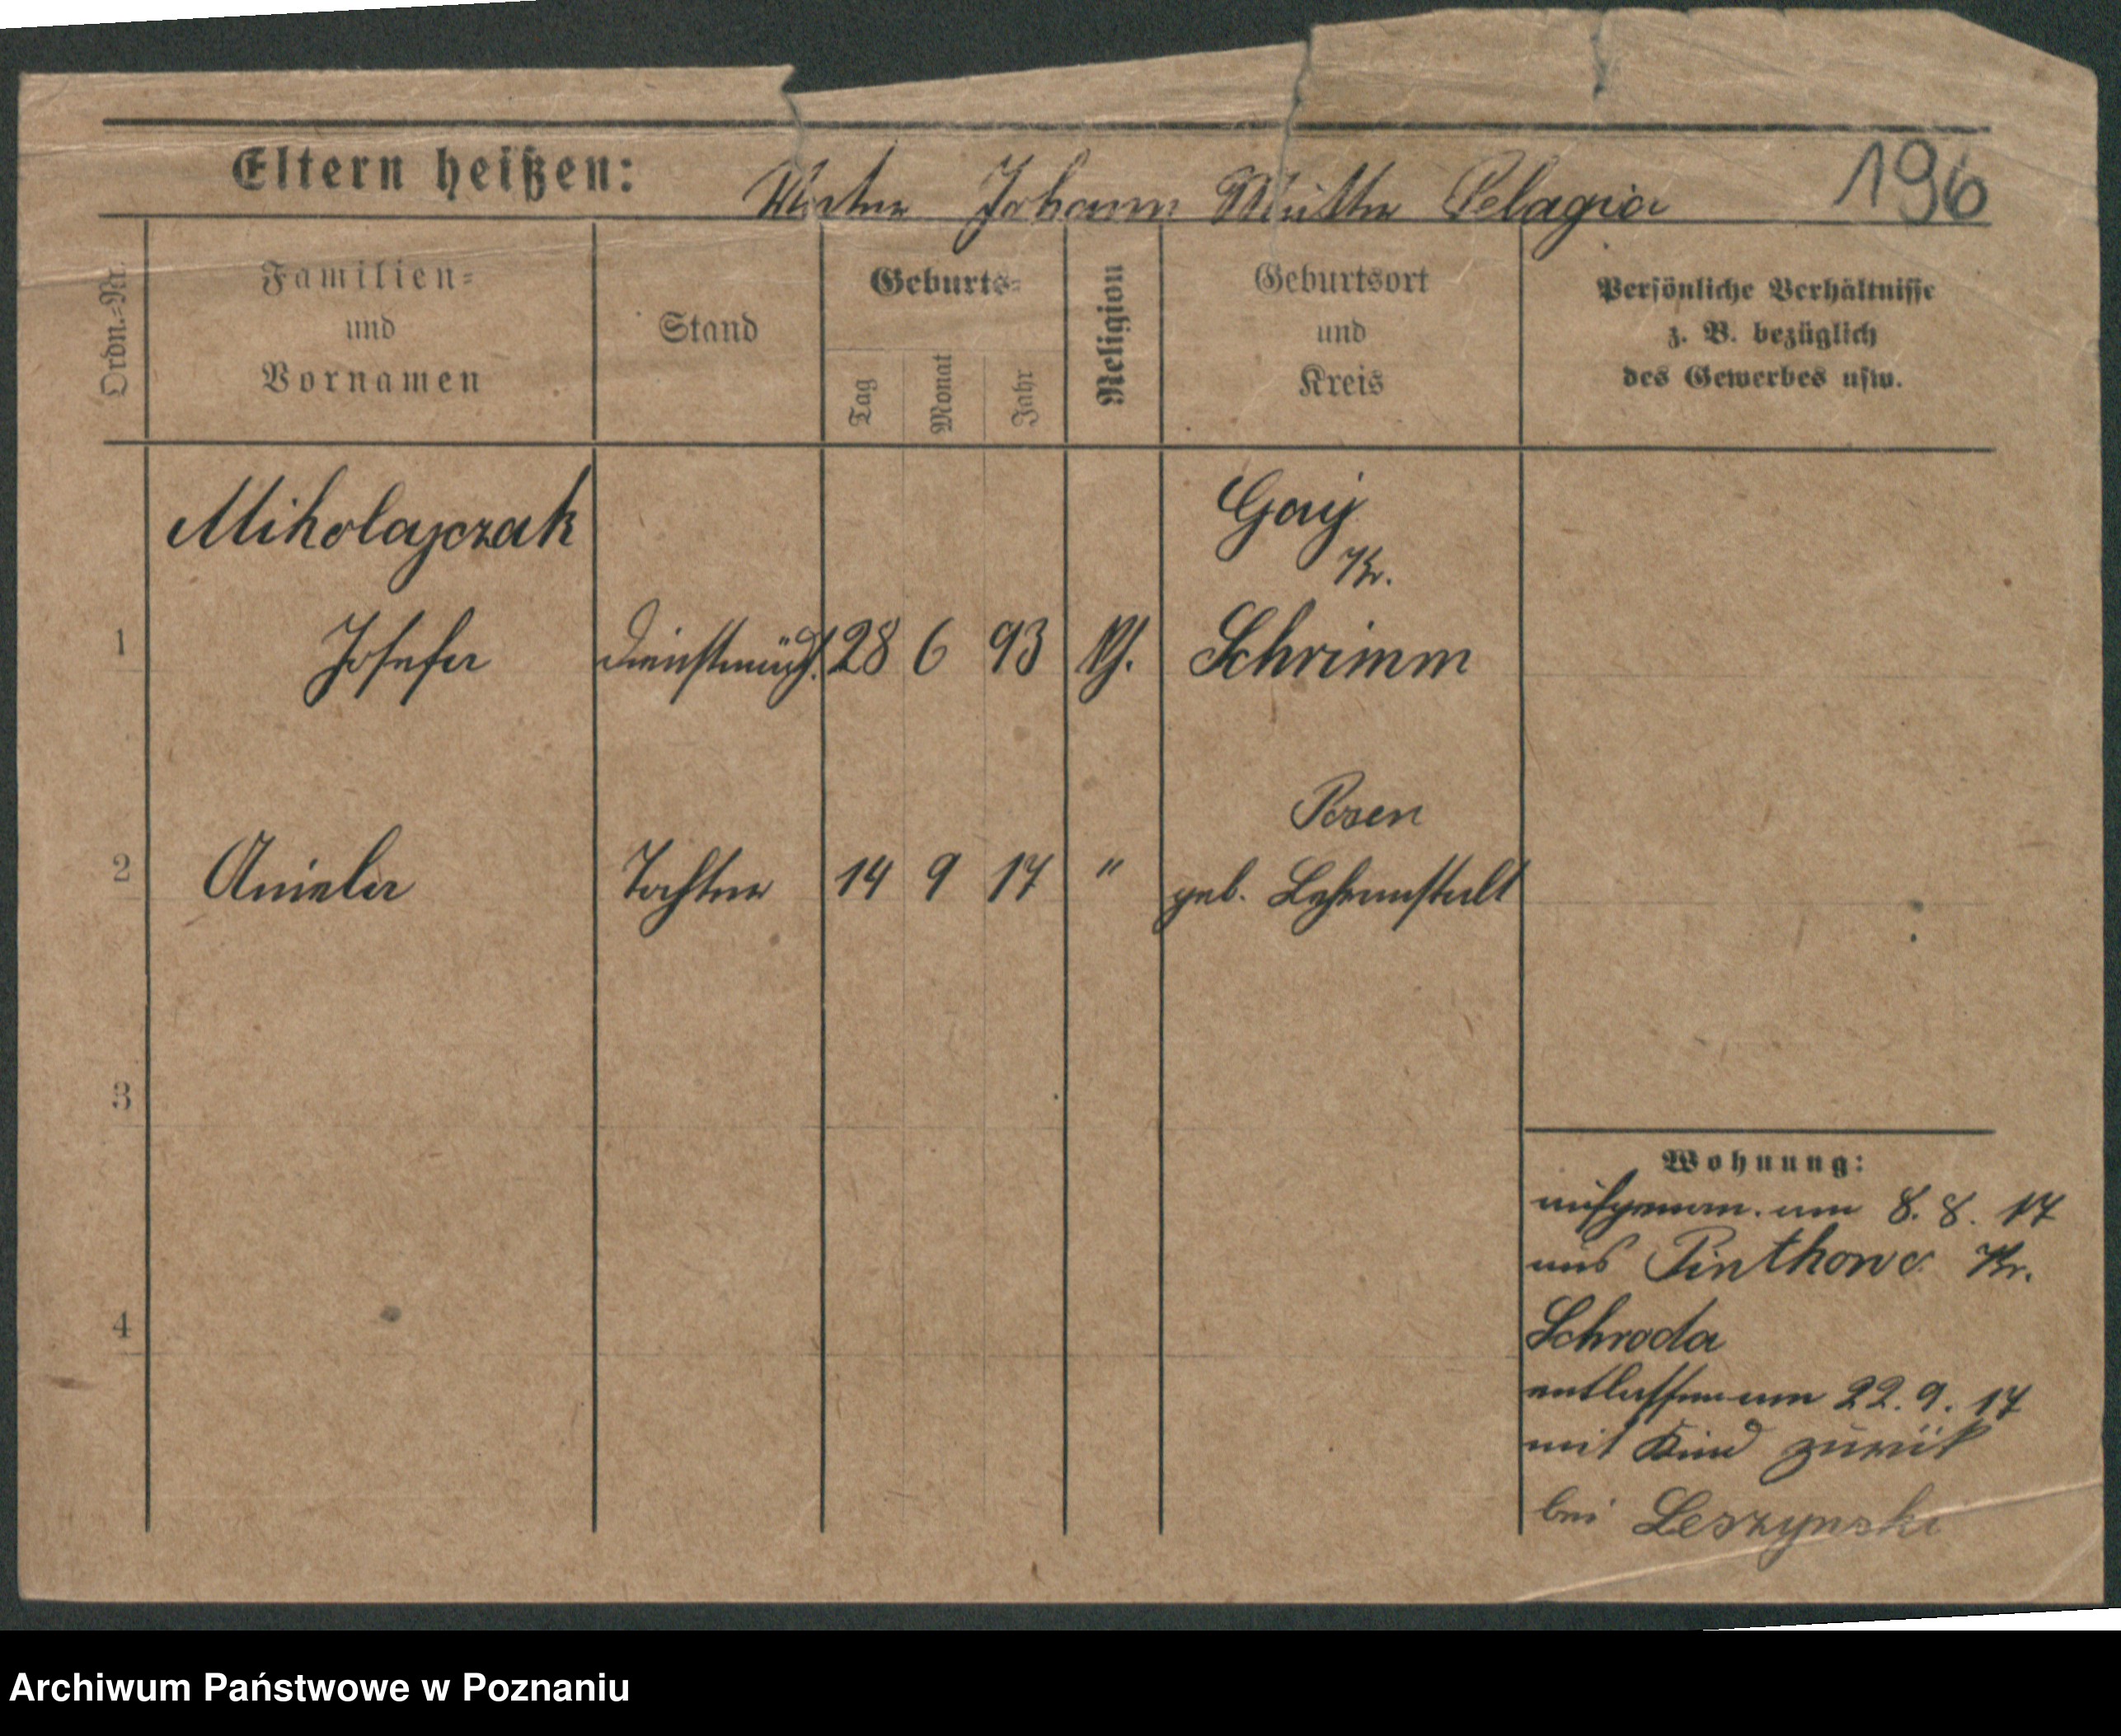 196
Eltern heißen: Vater Johann Mutter Pelagia
Ordn.-Nr.
Familien=
und
Vornamen
Stand
Geburts=
Tag
Monat
Jahr
Religion
Geburtsort
und
Kreis
Persönliche Verhältnisse
z. B. bezüglich
des Gewerbes usw.
Mikolajczak
Gay
Kr.
1 Josefa Dienstmädch. 28 6 93 Schrimm
Posen
2 Aniela Tochter 14 9 17 " geb. Lehranstalt
3
4
Wohnung:
aufgenom. am 8. 8. 17
aus Kr.
Schroda
entlassen am 22. 9. 17
mit Kind zurük
bei Leszynski
Archiwum Państwowe w Poznaniu